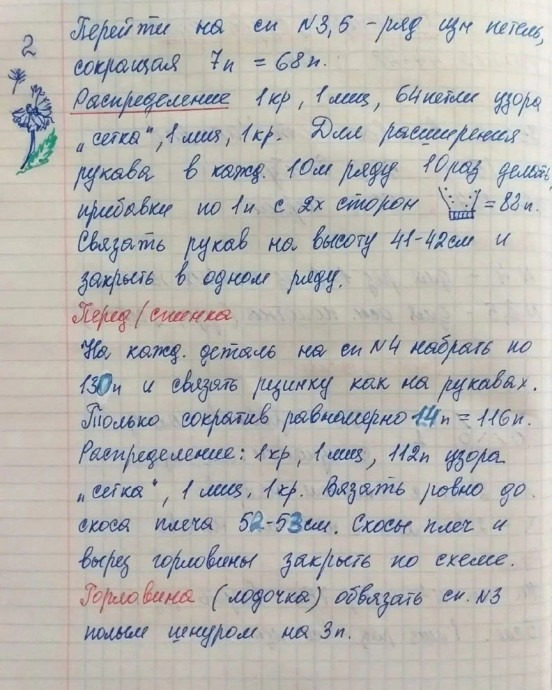 2
Перейти на сп №3,5 - ряд изн петель,
сокращая 7п = 68п.
Распределение 1кр, 1лиц, 64петли узора
„сетка“, 1лиц, 1кр. Для расширения
рукава в кажд. 10м ряду 10раз делать
прибавки по 1п с 2х сторон = 88п.
Связать рукав на высоту 41-42см и
закрыть в одном ряду.
Перед/спинка
На кажд. деталь на сп №4 набрать по
130п и связать резинку как на рукавах.
Только сократив равномерно 14п = 116п.
Распределение: 1кр, 1лиц, 112п узора
„сетка“, 1лиц, 1кр. Вязать ровно до
скоса плеча 52-53см. Скосы плеч и
вырез горловины закрыть по схеме.
Горловина (лодочка) обвязать сп. №3
полым шнуром на 3п.